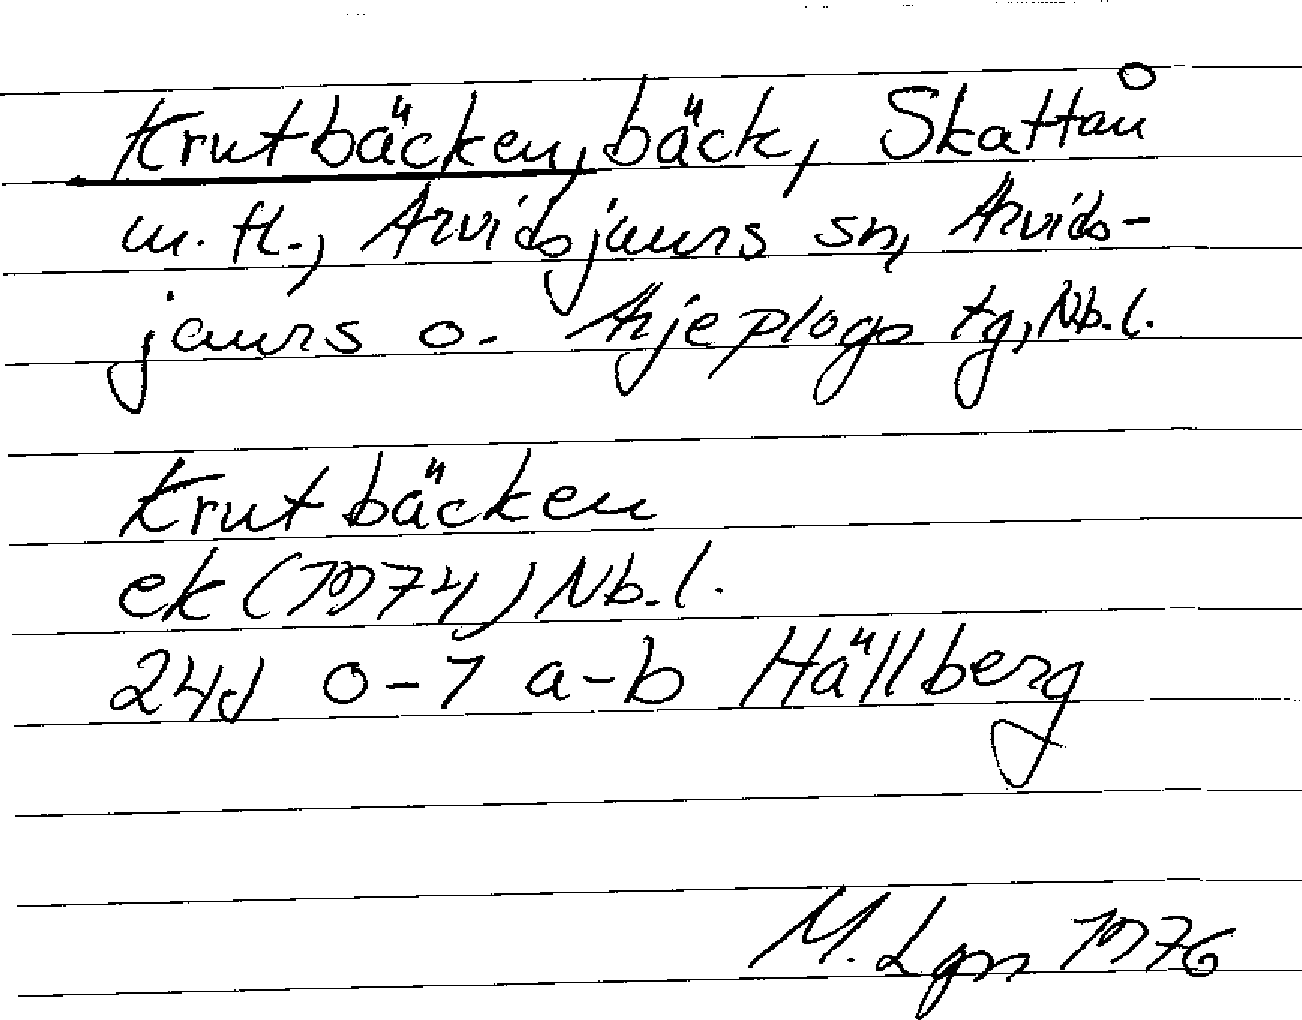 Krutbäcken, bäck, Skattån
m. fl., Arvidsjaurs sn, Arvids-
jaurs o. Arjeplogs tg, Nb. l.
Krutbäcken
ek (1974) Nb. l.
24J 0-7 a-b Hällberg
M. Lgn 1976